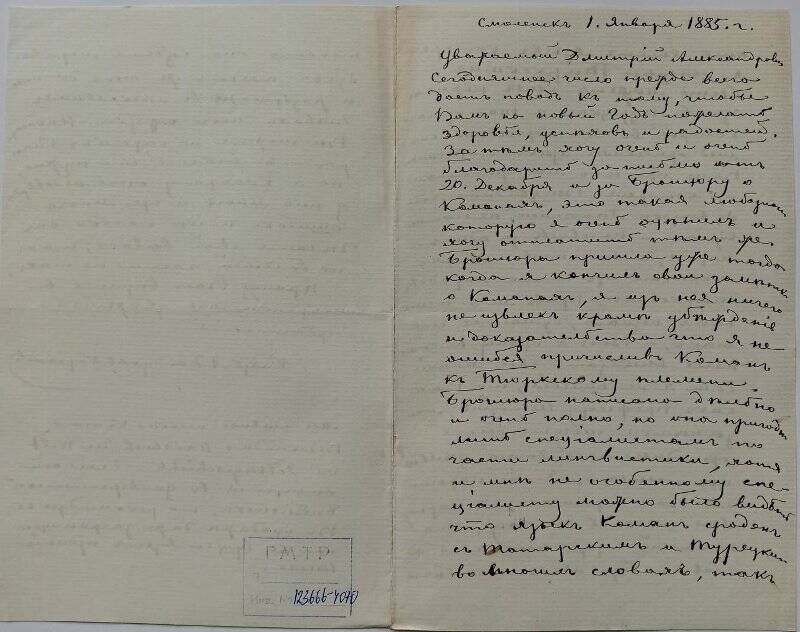 Смоленскъ 1. Января 1885. г.
Уважаемый Дмитрій Александровичъ
Сегодняшнее число прежде всего
даетъ поводъ къ тому, чтобы
Вамъ на новый Годъ пожелать
здоровья, успѣховъ и радостей.
Затѣмъ хочу очень и очень
благодарить за письмо отъ
20. Декабря и за Брошюру о
Команахъ, это такая любезность
которую я очень оцѣнилъ и
хочу отплатить тѣмъ же.
Брошюра пришла уже тогда
когда я кончилъ свои замѣтки
о Команахъ, я изъ нея ничего
не извлекъ кромѣ убѣжденіе
и доказательства что я не
ошибся причисливъ Команъ
къ Тюркскому племени.
Брошюра написана дѣльно
и очень полно, но она пригодна
лишь спеціалистамъ по
части лингвистики, хотя
и мнѣ не особенному спе-
ціалисту можно было видѣть
что языкъ Команъ сроденъ
съ Татарскимъ и Турецкимъ
во многихъ словахъ, такъ
ГМТР
Инв. № 123666-4070